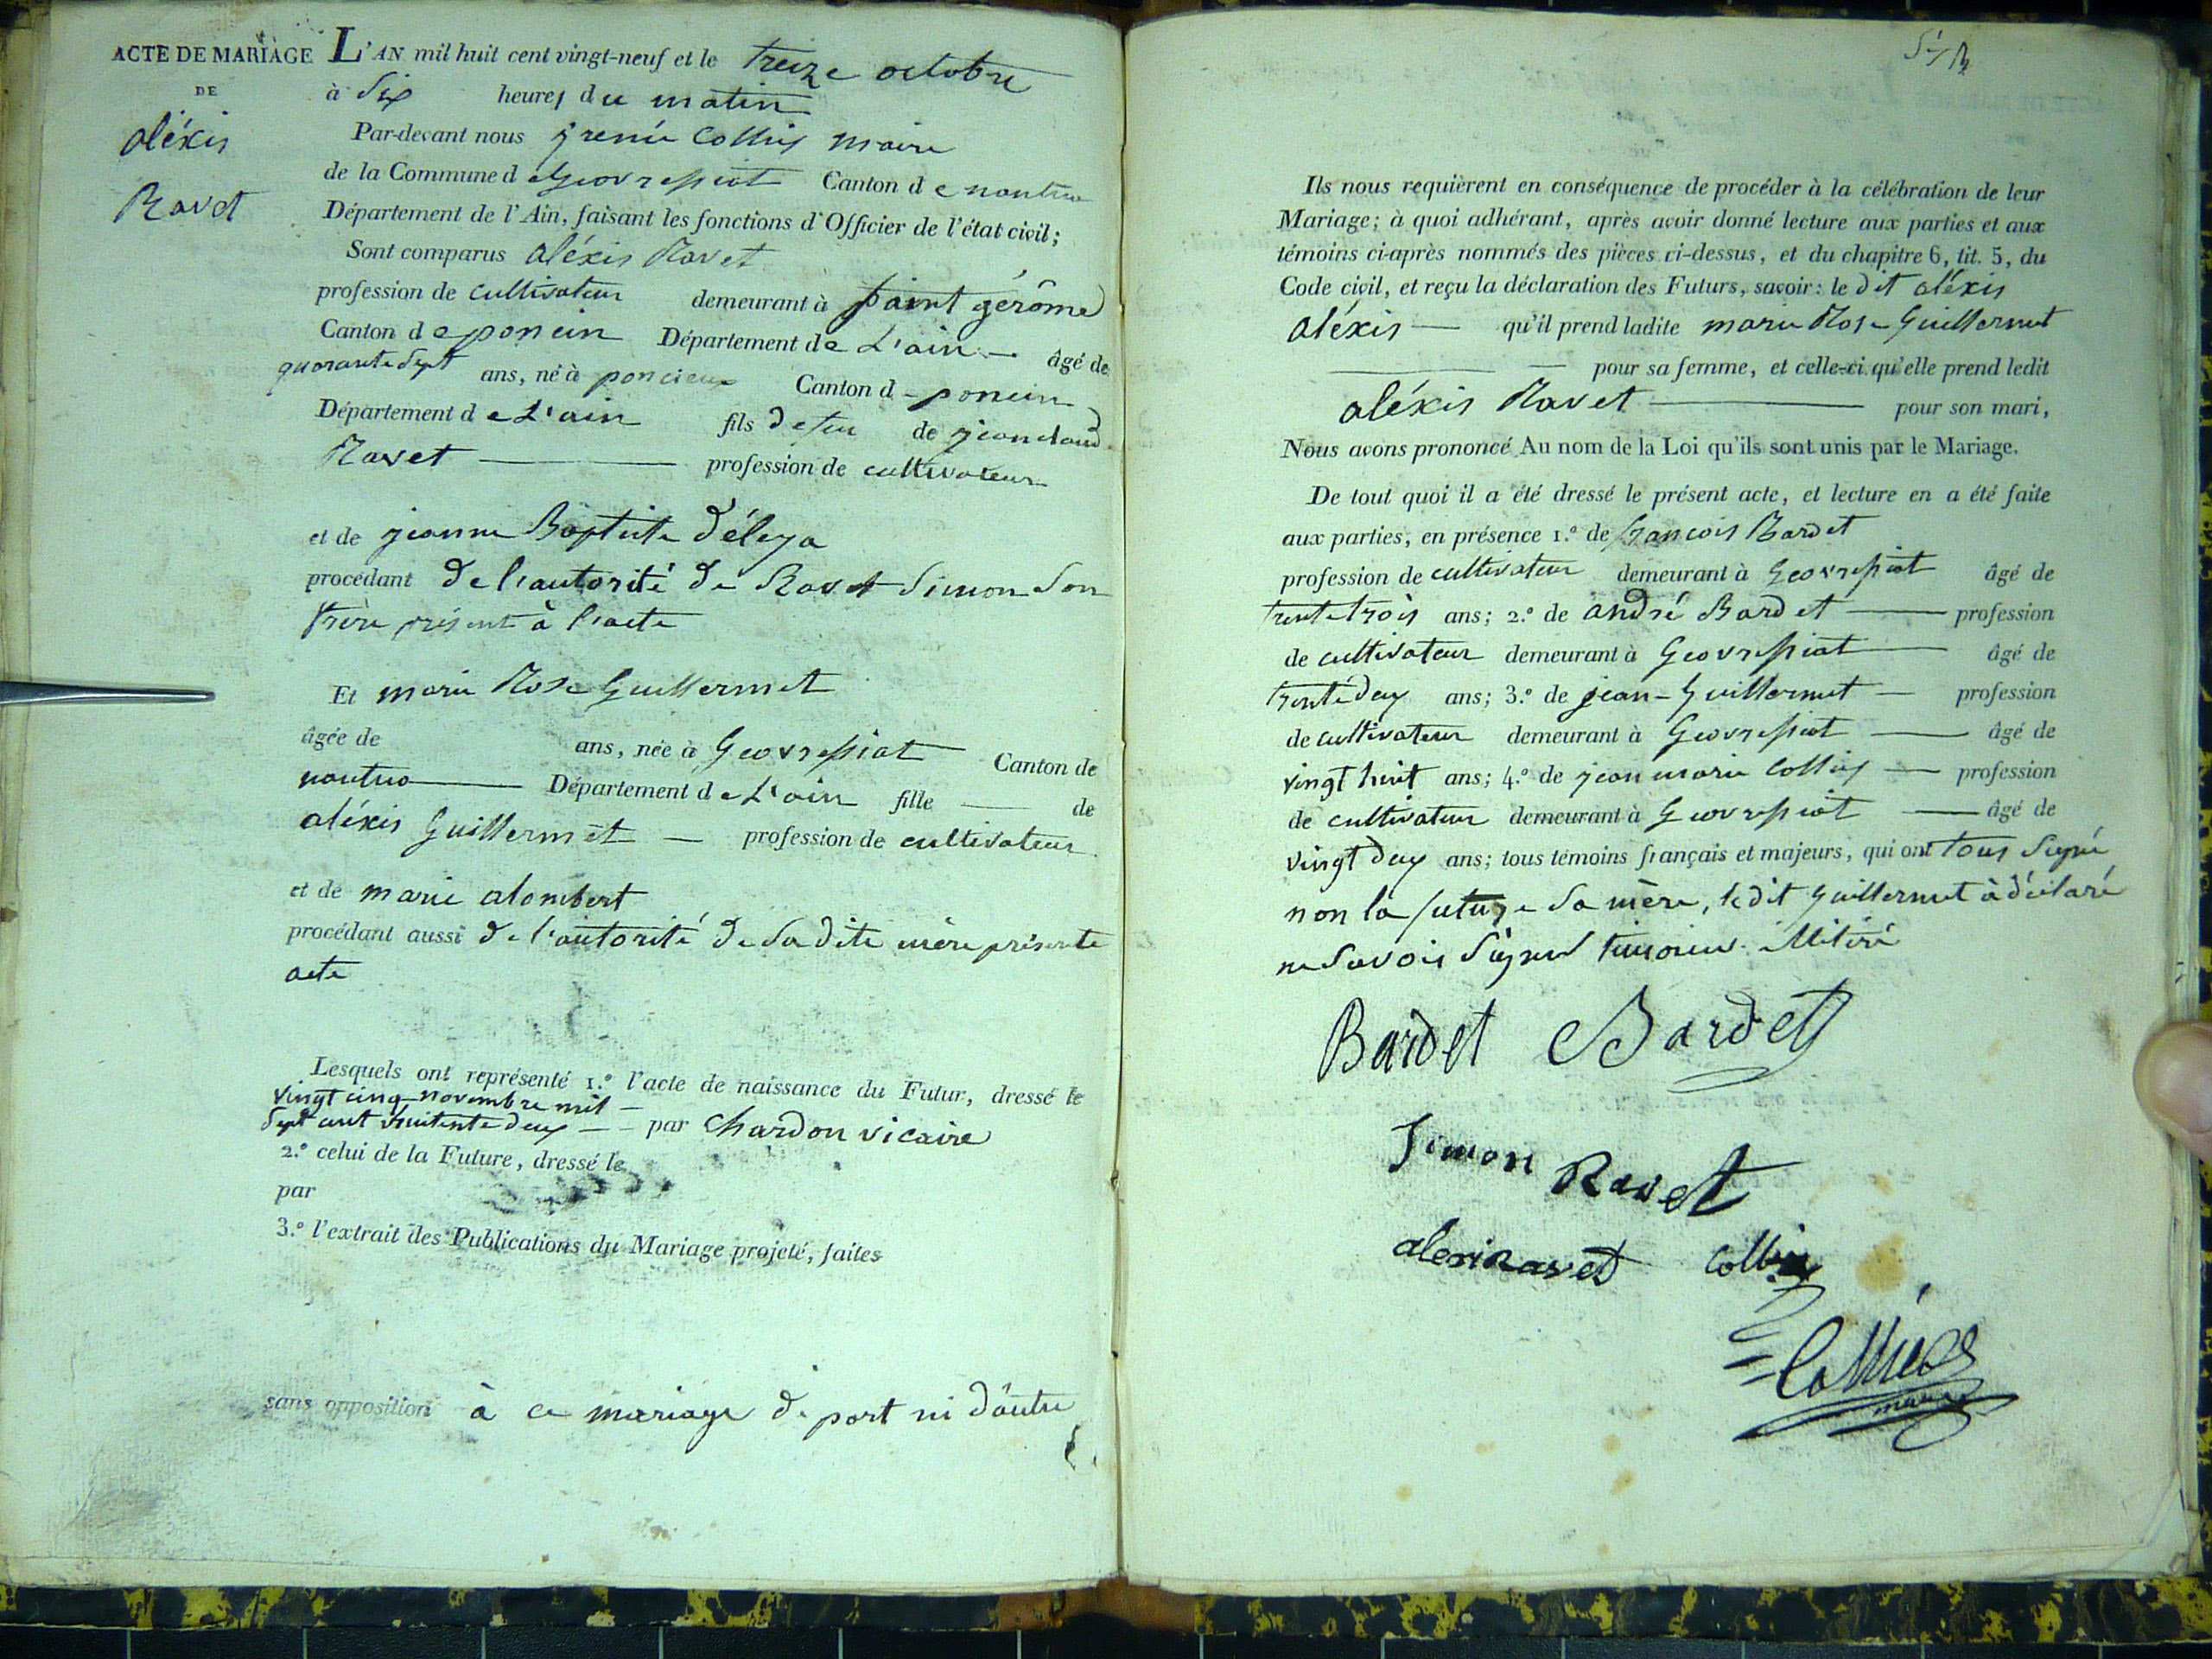 ACTE DE MARIAGE
DE
aléxis
Ravet
L'AN mil huit cent vingt-neuf et le treize octobre
à Six heures du matin
Par-devant nous jrenée Collies maire
de la Commune de Geovressiat Canton de nantua
Département de l'Ain, faisant les fonctions d'Officier de l'état civil;
Sont comparus aléxis Ravet
profession de cultivateur demeurant à saint gérôme
Canton de poncin Département de L'ain — âgé de
quarante Sept ans, né à poncieux Canton d - poncin
Département de L'ain fils de feu de jean claud
Ravet — profession de cultivateur
et de jeanne Baptiste déleya
procédant de l'autorité de Ravet Simon Son
frère présent à l'acte
Et marie Rose Guillermet
âgée de ans, née à Geovressiat Canton de
nantua — Département de L'ain fille — de
aléxis Guillermet — profession de cultivateur
et de marie alombert
procédant aussi de l'autorité de Sa dite mère présente
acte
Lesquels ont représenté 1.º l'acte de naissance du Futur, dressé le
vingt cinq novembre mil —
Sept cent huitente deux — par Chardon vicaire
2.º celui de la Future, dressé le
par
3.º l'extrait des Publications du Mariage projeté, faites
sans opposition à ce mariage de port ni d'autre
Ils nous requièrent en conséquence de procéder à la célébration de leur
Mariage; à quoi adhérant, après avoir donné lecture aux parties et aux
témoins ci-après nommés des pièces ci-dessus, et du chapitre 6, tit. 5, du
Code civil, et reçu la déclaration des Futurs, savoir: le dit aléxis
aléxis — qu'il prend ladite marie Rose Guillermet
— pour sa femme, et celle-ci qu'elle prend ledit
aléxis Ravet — pour son mari,
Nous avons prononcé Au nom de la Loi qu'ils sont unis par le Mariage.
De tout quoi il a été dressé le présent acte, et lecture en a été faite
aux parties, en présence 1.º de françois Bardet
profession de cultivateur demeurant à Geovressiat âgé de
trente trois ans; 2.º de andré Bardet — profession
de cultivateur demeurant à Geovressiat — âgé de
trente deux ans; 3.º de jean - Guillermet — profession
de cultivateur demeurant à Geovressiat — âgé de
vingt huit ans; 4.º de jean marie Collies — profession
de cultivateur demeurant à Geovressiat — âgé de
vingt deux ans; tous témoins français et majeurs, qui ont tous Signé
non la future Sa mère, le dit Guillermet à déclaré
ne Savoir Signer témoins illitéré
Bardet Bardet
Simon Ravet
alexi Ravet Collies
Collies
maire